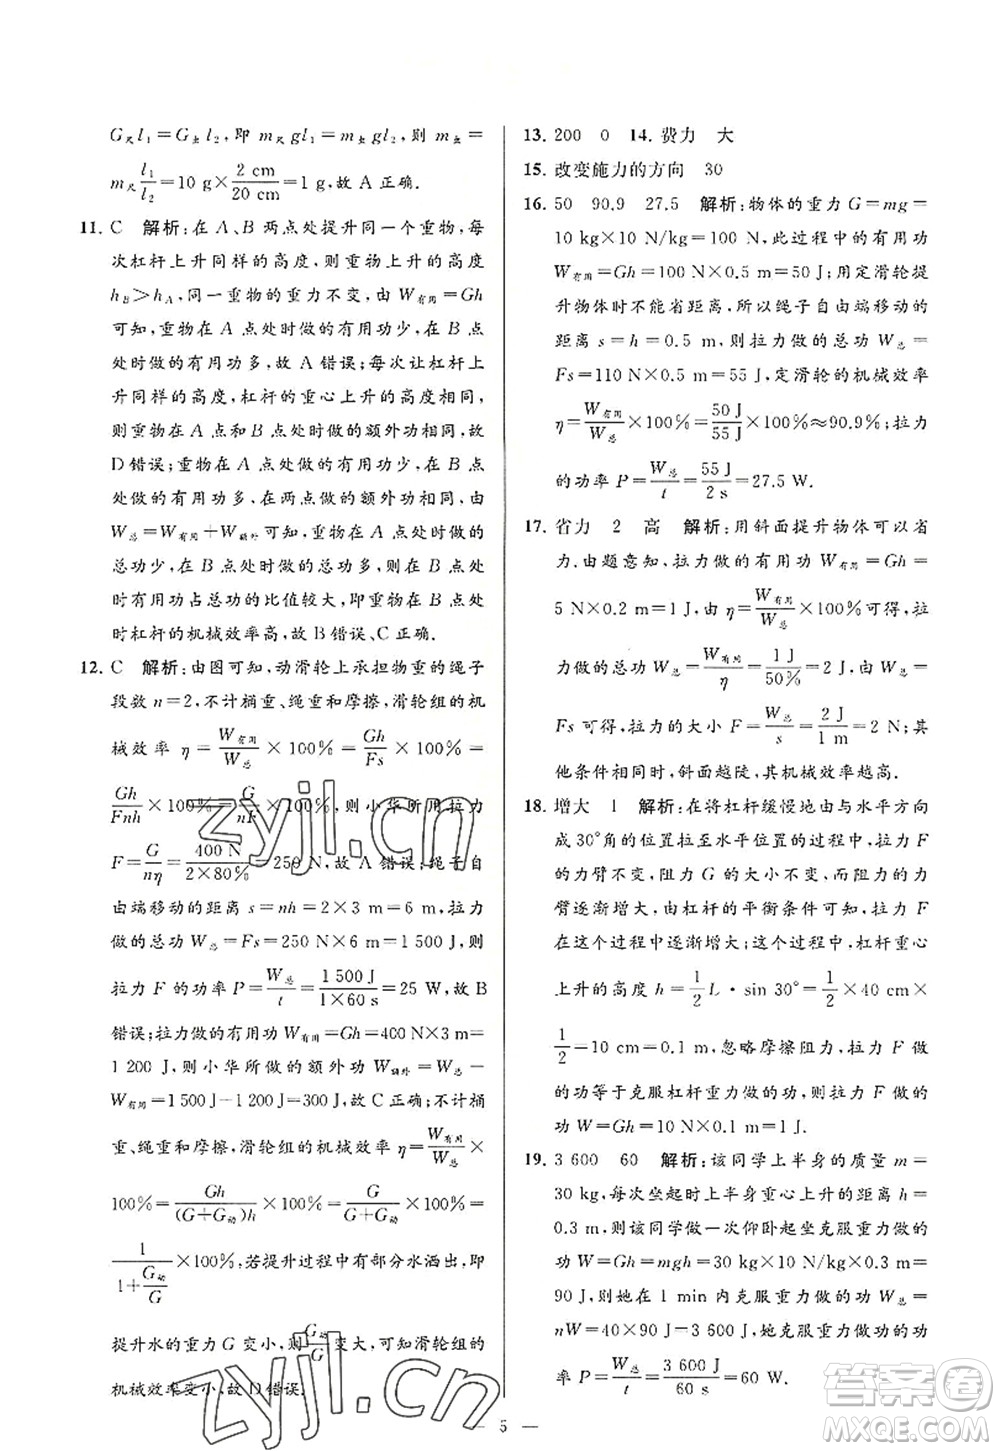 G尺l₁=G虫l₂,即 m尺gl₁=m虫gl₂,则 m虫=
m尺 l₁/l₂=10 g×2 cm/20 cm=1 g,故 A 正确.
11. C 解析:在 A、B 两点处提升同一个重物,每
次杠杆上升同样的高度,则重物上升的高度
hB>hA,同一重物的重力不变,由 W有用=Gh
可知,重物在 A 点处时做的有用功少,在 B 点
处时做的有用功多,故 A 错误;每次让杠杆上
升同样的高度,杠杆的重心上升的高度相同,
则重物在 A 点和在 B 点处时做的额外功相同,故
D 错误;重物在 A 点处时做的有用功少,在 B 点
处时做的有用功多,在两点做的额外功相同,由
W总=W有用+W额外可知,重物在 A 点处时做的
总功少,在 B 点处时做的总功多,则在 B 点处
时有用功占总功的比值较大,即重物在 B 点处
时杠杆的机械效率高,故 B 错误、C 正确.
12. C 解析:由图可知,动滑轮上承担物重的绳子
段数 n=2,不计桶重、绳重和摩擦,滑轮组的机
械效率 η=W有用/W总×100%=Gh/Fs×100%=
Gh/Fnh×100%=G/nF×100%,则小华所用拉力
F=G/nη=400 N/2×80%=250 N,故 A 错误;绳子自
由端移动的距离 s=nh=2×3 m=6 m,拉力
做的总功 W总=Fs=250 N×6 m=1 500 J,则
拉力 F 的功率 P=W总/t=1 500 J/1×60 s=25 W,故 B
错误;拉力做的有用功 W有用=Gh=400 N×3 m=
1 200 J,则小华所做的额外功 W额外=W总-
W有用=1 500 J-1 200 J=300 J,故 C 正确;不计桶
重、绳重和摩擦,滑轮组的机械效率 η=W有用/W总×
100%=Gh/(G+G动)h×100%=G/G+G动×100%=
1/1+G动/G×100%,若提升过程中有部分水洒出,即
提升水的重力 G 变小,则G动/G变大,可知滑轮组的
机械效率变小,故 D 错误.
13. 200 0 14. 费力 大
15. 改变施力的方向 30
16. 50 90.9 27.5 解析:物体的重力 G=mg=
10 kg×10 N/kg=100 N,此过程中的有用功
W有用=Gh=100 N×0.5 m=50 J;用定滑轮提
升物体时不能省距离,所以绳子自由端移动的
距离 s=h=0.5 m,则拉力做的总功 W总=
Fs=110 N×0.5 m=55 J,定滑轮的机械效率
η=W有用/W总×100%=50 J/55 J×100%≈90.9%;拉力
的功率 P=W总/t=55 J/2 s=27.5 W.
17. 省力 2 高 解析:用斜面提升物体可以省
力,由题意知,拉力做的有用功 W有用=Gh=
5 N×0.2 m=1 J;由 η=W有用/W总×100%可得,拉
力做的总功 W总=W有用/η=1 J/50%=2 J,由 W总=
Fs 可得,拉力的大小 F=W总/s=2 J/1 m=2 N;其
他条件相同时,斜面越陡,其机械效率越高.
18. 增大 1 解析:在将杠杆缓慢地由与水平方向
成 30°角的位置拉至水平位置的过程中,拉力 F
的力臂不变,阻力 G 的大小不变,而阻力的力
臂逐渐增大,由杠杆的平衡条件可知,拉力 F
在这个过程中逐渐增大;这个过程中,杠杆重心
上升的高度 h=1/2L·sin 30°=1/2×40 cm×
1/2=10 cm=0.1 m,忽略摩擦阻力,拉力 F 做
的功等于克服杠杆重力做的功,则拉力 F 做的
功 W=Gh=10 N×0.1 m=1 J.
19. 3 600 60 解析:该同学上半身的质量 m=
30 kg,每次坐起时上半身重心上升的高度 h=
0.3 m,则该同学做一次仰卧起坐克服重力做的
功 W=Gh=mgh=30 kg×10 N/kg×0.3 m=
90 J,则她在 1 min 内克服重力做的功 W总=
nW=40×90 J=3 600 J,她克服重力做功的功
率 P=W总/t=3 600 J/60 s=60 W.
— 5 —
zyjl.cn
zyjl.cn
答案圈
MXQE.COM